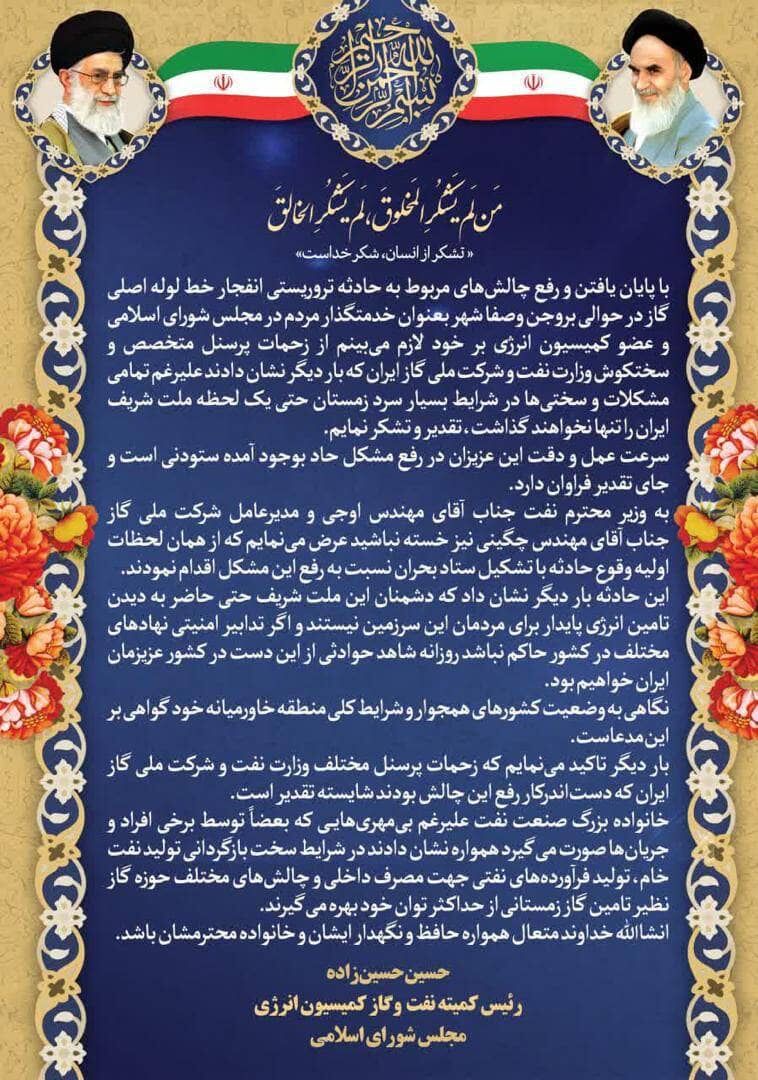 بسم الله الرحمن الرحیم
مَن لَم یَشکُرِ المَخلوقَ، لَم یَشکُرِ الخالِقَ
« تشکر از انسان، شکر خداست»
با پایان یافتن و رفع چالش‌های مربوط به حادثه تروریستی انفجار خط لوله اصلی
گاز در حوالی بروجن وصفا شهر بعنوان خدمتگذار مردم در مجلس شورای اسلامی
و عضو کمیسیون انرژی بر خود لازم می‌بینم از زحمات پرسنل متخصص و
سختکوش وزارت نفت و شرکت ملی گاز ایران که بار دیگر نشان دادند علیرغم تمامی
مشکلات و سختی‌ها در شرایط بسیار سرد زمستان حتی یک لحظه ملت شریف
ایران را تنها نخواهند گذاشت، تقدیر و تشکر نمایم.
سرعت عمل و دقت این عزیزان در رفع مشکل حاد بوجود آمده ستودنی است و
جای تقدیر فراوان دارد.
به وزیر محترم نفت جناب آقای مهندس اوجی و مدیرعامل شرکت ملی گاز
جناب آقای مهندس چگینی نیز خسته نباشید عرض می‌نمایم که از همان لحظات
اولیه وقوع حادثه با تشکیل ستاد بحران نسبت به رفع این مشکل اقدام نمودند.
این حادثه بار دیگر نشان داد که دشمنان این ملت شریف حتی حاضر به دیدن
تامین انرژی پایدار برای مردمان این سرزمین نیستند و اگر تدابیر امنیتی نهادهای
مختلف در کشور حاکم نباشد روزانه شاهد حوادثی از این دست در کشور عزیزمان
ایران خواهیم بود.
نگاهی به وضعیت کشورهای همجوار و شرایط کلی منطقه خاورمیانه خود گواهی بر
این مدعاست.
بار دیگر تاکید می‌نمایم که زحمات پرسنل مختلف وزارت نفت و شرکت ملی گاز
ایران که دست‌اندرکار رفع این چالش بودند شایسته تقدیر است.
خانواده بزرگ صنعت نفت علیرغم بی‌مهری‌هایی که بعضاً توسط برخی افراد و
جریان‌ها صورت می گیرد همواره نشان دادند در شرایط سخت بازگردانی تولید نفت
خام، تولید فرآورده‌های نفتی جهت مصرف داخلی و چالش‌های مختلف حوزه گاز
نظیر تامین گاز زمستانی از حداکثر توان خود بهره می گیرند.
انشاالله خداوند متعال همواره حافظ و نگهدار ایشان و خانواده محترمشان باشد.
حسین حسین‌زاده
رئیس کمیته نفت و گاز کمیسیون انرژی
مجلس شورای اسلامی